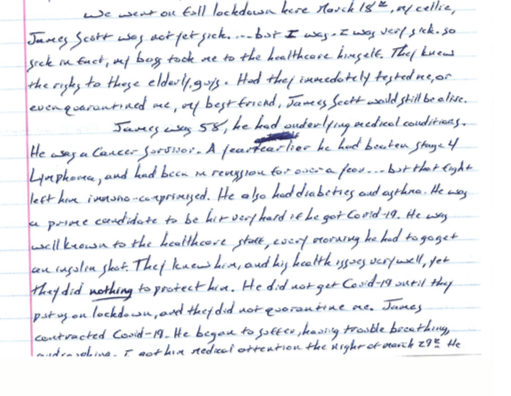 We went on full lockdown here March 18th, my cellie,
James Scott was not yet sick...but I was. I was very sick. so
sick in fact, my boss took me to the healthcare himself. They knew
the risks to these elderly guys. Had they immedetely tested me, or
even quarantined me, my best friend, James Scott would still be alive.
James was 58, he had underlying medical conditions.
He was a Cancer Survivor. A year earlier he had beaten stage 4
Lymphoma, and had been in remission for over a year...but that fight
left him immuno-comprimised. He also had diabeties and asthma. He was
a prime candidate to be hit very hard if he got Covid-19. He was
well known to the healthcare staff, every morning he had to go get
an insulin shot. They knew him, and his health issues very well, yet
they did nothing to protect him. He did not get Covid-19 until they
put us on lockdown, and they did not quarantine me. James
contracted Covid-19. He began to suffer, having trouble breathing,
I got him medical attention the night of March 29th He